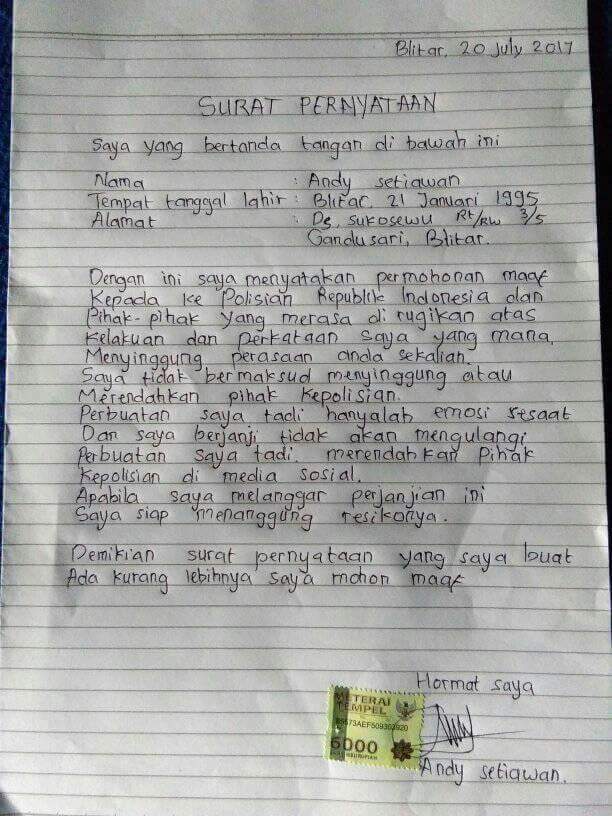 Blitar, 20 July 2017
SURAT PERNYATAAN
Saya yang bertanda tangan di bawah ini
Nama : Andy setiawan
Tempat tanggal lahir : Blitar, 21 Januari 1995
Alamat : Ds, sukosewu Rt/RW 3/5
Gandusari, Blitar.
Dengan ini saya menyatakan permohonan maaf
Kepada ke Polisian Republik Indonesia dan
Pihak-pihak yang merasa di rugikan atas
Kelakuan dan perkataan saya yang mana,
Menyinggung perasaan anda sekalian.
Saya tidak bermaksud menyinggung atau
Merendahkan pihak kepolisian.
Perbuatan saya tadi hanyalah emosi sesaat
Dan saya berjanji tidak akan mengulangi
Perbuatan saya tadi. merendahkan Pihak
Kepolisian di media sosial.
Apabila saya melanggar perjanjian ini
Saya siap menanggung resikonya.
Demikian surat pernyataan yang saya buat
Ada kurang lebihnya saya mohon maaf
Hormat saya
METERAI
TEMPEL
6000
Andy setiawan.